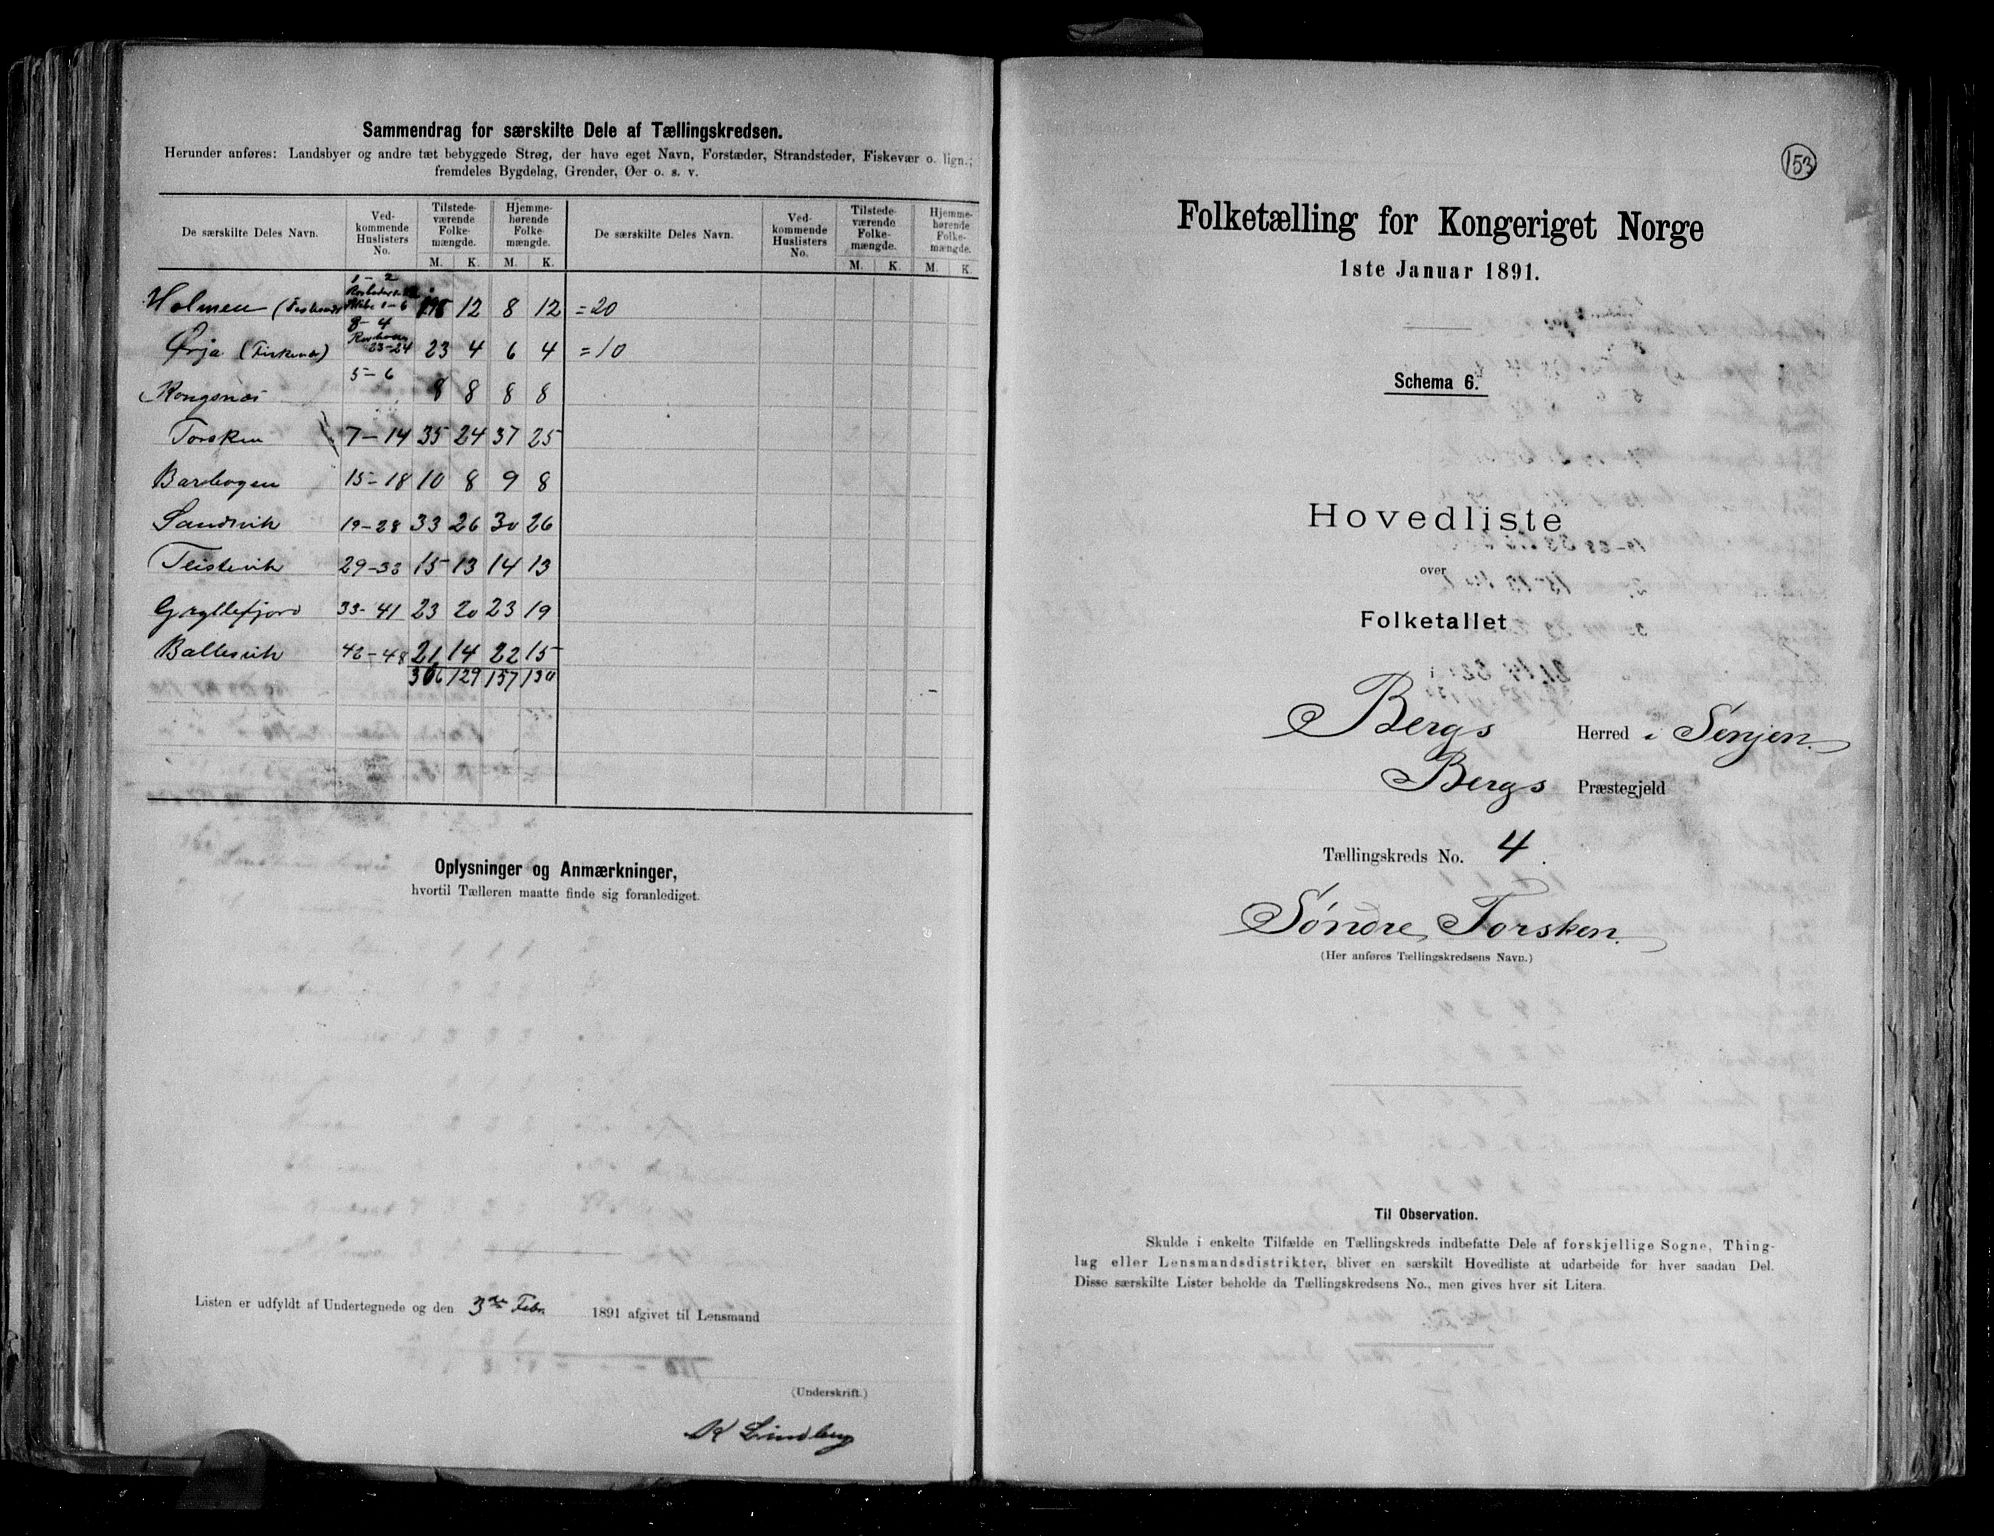 Sammendrag for særskilte Dele af Tællingskredsen.
Herunder anføres: Landsbyer og andre tæt bebyggede Strøg, der have eget Navn, Forstæder, Strandsteder, Fiskevær o. lign.;
fremdeles Bygdelag, Grender, Øer o. s. v.
De særskilte Deles Navn. Ved-kommende Huslisters No. Tilstede-værende Folke-mængde. Hjemme-hørende Folke-mængde. De særskilte Deles Navn. Ved-kommende Huslisters No. Tilstede-værende Folke-mængde. Hjemme-hørende Folke-mængde.
M. K. M. K. M. K. M. K.
Holmen 1-2 1-6 12 8 12 =20
Ørja (Fiskevær) 23-24 23 4 6 4 =10
Kongsnæs 5-6 8 8 8 8
Torsken 7-14 35 24 37 25
Barbogen 15-18 10 8 9 8
Sandvik 19-28 33 26 30 26
Teistevik 29-33 15 13 14 13
Gryllefjord 33-41 23 20 23 19
Ballesvik 42-48 21 14 22 15
306 129 157 130
Oplysninger og Anmærkninger,
hvortil Tælleren maatte finde sig foranlediget.
Listen er udfyldt af Undertegnede og den 3die Febr. 1891 afgivet til Lensmand
(Underskrift.)
K Lindberg
153
Folketælling for Kongeriget Norge
1ste Januar 1891.
Schema 6.
Hovedliste
over
Folketallet
Bergs Herred i Senjen.
Bergs Præstegjeld
Tællingskreds No. 4.
Søndre Torsken.
(Her anføres Tællingskredsens Navn.)
Til Observation.
Skulde i enkelte Tilfælde en Tællingskreds indbefatte Dele af forskjellige Sogne, Thing-
lag eller Lensmandsdistrikter, bliver en særskilt Hovedliste at udarbeide for hver saadan Del.
Disse særskilte Lister beholde da Tællingskredsens No., men gives hver sit Litera.